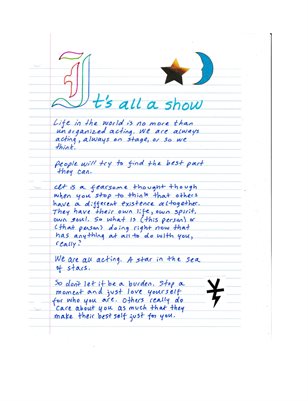 It's all a show
Life in the world is no more than
unorganized acting. We are always
acting, always on stage, or so we
think.
People will try to find the best part
they can.
It is a fearsome thought though
when you stop to think that others
have a different existence altogether.
They have their own life, own spirit,
own soul. So what is (this person) or
(that person) doing right now that
has anything at all to do with you,
really?
We are all acting. A star in the sea
of stars.
So don't let it be a burden. Stop a
moment and just love yourself
for who you are. Others really do
care about you as much that they
make their best self just for you.